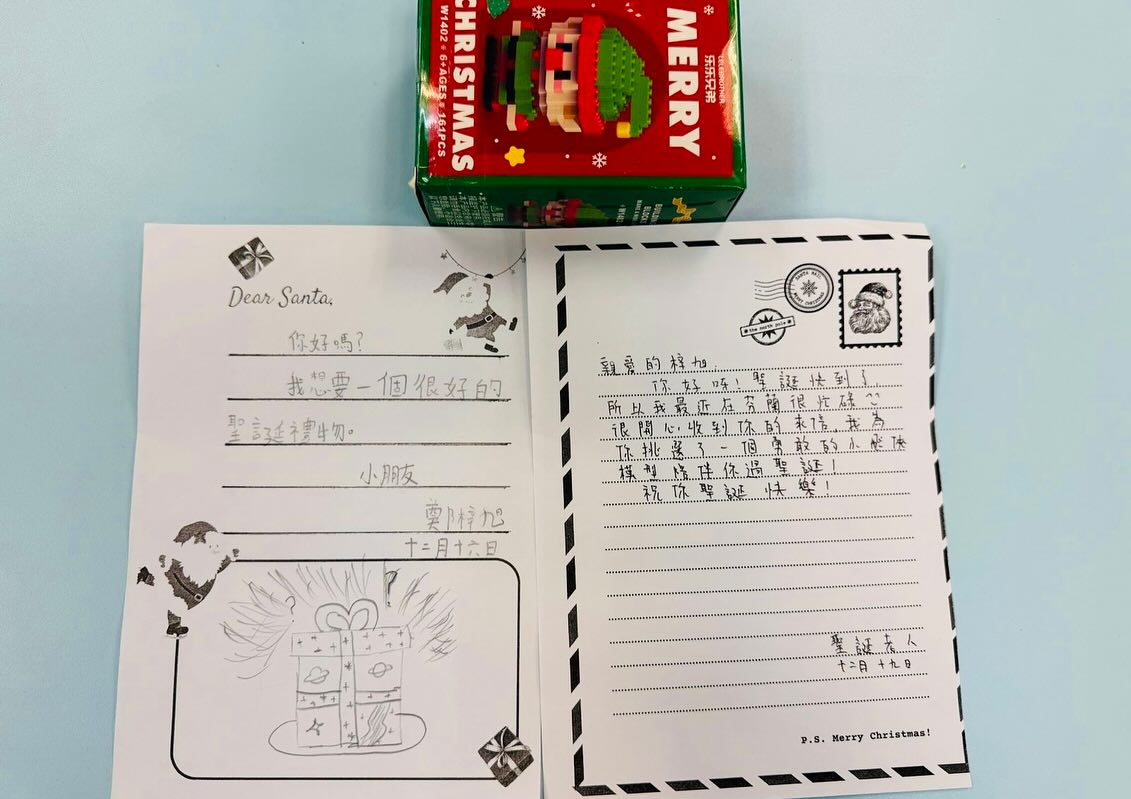 MERRY
CHRISTMAS
W1402 * 6+AGES * 161PCS
LELEBROTHER
乐乐兄弟
BUILDING
BLOCKS
Dear Santa,
你好嗎?
我想要一個很好的
聖誕禮物。
小朋友
鄭梓旭
十二月十六日
?
?
SANTA MAIL
MERRY CHRISTMAS
the north pole
親愛的梓旭,
你好呀!聖誕快到了,
所以我最近在芬蘭很忙碌~~
很開心收到你的來信,我為
你挑選了一個勇敢的小
模型陪伴你過聖誕!
祝你聖誕快樂!
聖誕老人
十二月十九日
P.S. Merry Christmas!